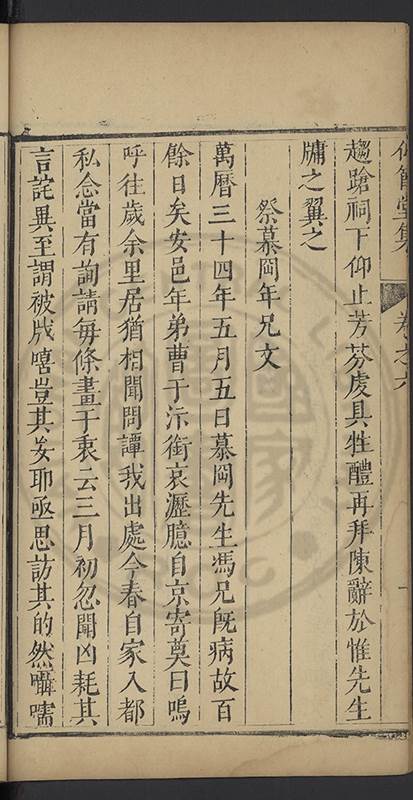 仰節堂集 卷之六
趨蹌祠下仰止芳芬虔具牲醴再拜陳辭於惟先生
牖之翼之
祭慕岡年兄文
萬曆三十四年五月五日慕岡先生馮兄既病故百
餘日矣安邑年弟曹于汴銜哀瀝臆自京寄奠曰嗚
呼往歲余里居猶相聞問譚我出處今春自家入都
私念當有詢請每條畫于衷云三月初忽聞凶耗其
言詫異至謂被戕嘻豈其妄耶亟思訪其的然囁嚅